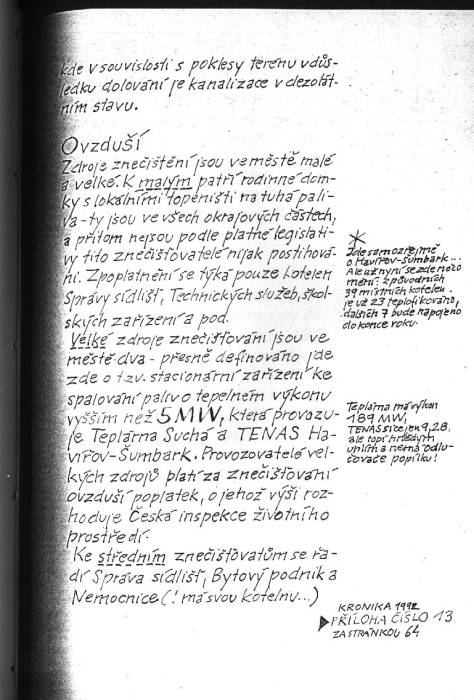 kde v souvislosti s poklesy terénu vdůs-
ledku dolování je kanalizace v dezolát-
ním stavu.
Ovzduší
Zdroje znečištění jsou ve městě malé
a velké. K malým patří rodinné dom-
ky s lokálními topeništi na tuhá pali-
va - ty jsou ve všech okrajových částech,
a přitom nejsou podle platné legislati-
vy tito znečišťovatelé nijak postihová-
ni. Zpoplatnění se týká pouze kotelen
Správy sídlišť, Technických služeb, škol-
ských zařízení a pod.
Velké zdroje znečišťování jsou ve
městě dva - přesně definováno jde
zde o t.zv. stacionární zařízení ke
spalování paliv o tepelném výkonu
vyšším než 5 MW, která provozu-
je Teplárna Suchá a TENAS Ha-
vířov-Šumbark. Provozovatelé vel-
kých zdrojů platí za znečišťování
ovzduší poplatek, o jehož výši roz-
hoduje Česká inspekce životního
prostředí.
Ke středním znečišťovatům se řa-
dí Správa sídlišť, Bytový podnik a
Nemocnice (! má svou kotelnu...)
*
Jde samozřejmě
o Havířov-Šumbark...
Ale už nyní se zde mnoho
mění: z původních
39 místních kotelen
je už 23 teplofikováno,
dalších 7 bude napojeno
do konce roku.
Teplárna má výkon
189 MW,
TENAS sice jen 9,28,
ale topí hnědým
uhlím a nemá odlu-
čovače popílku!
KRONIKA 1992
PŘÍLOHA ČÍSLO 13
ZA STRÁNKOU 64